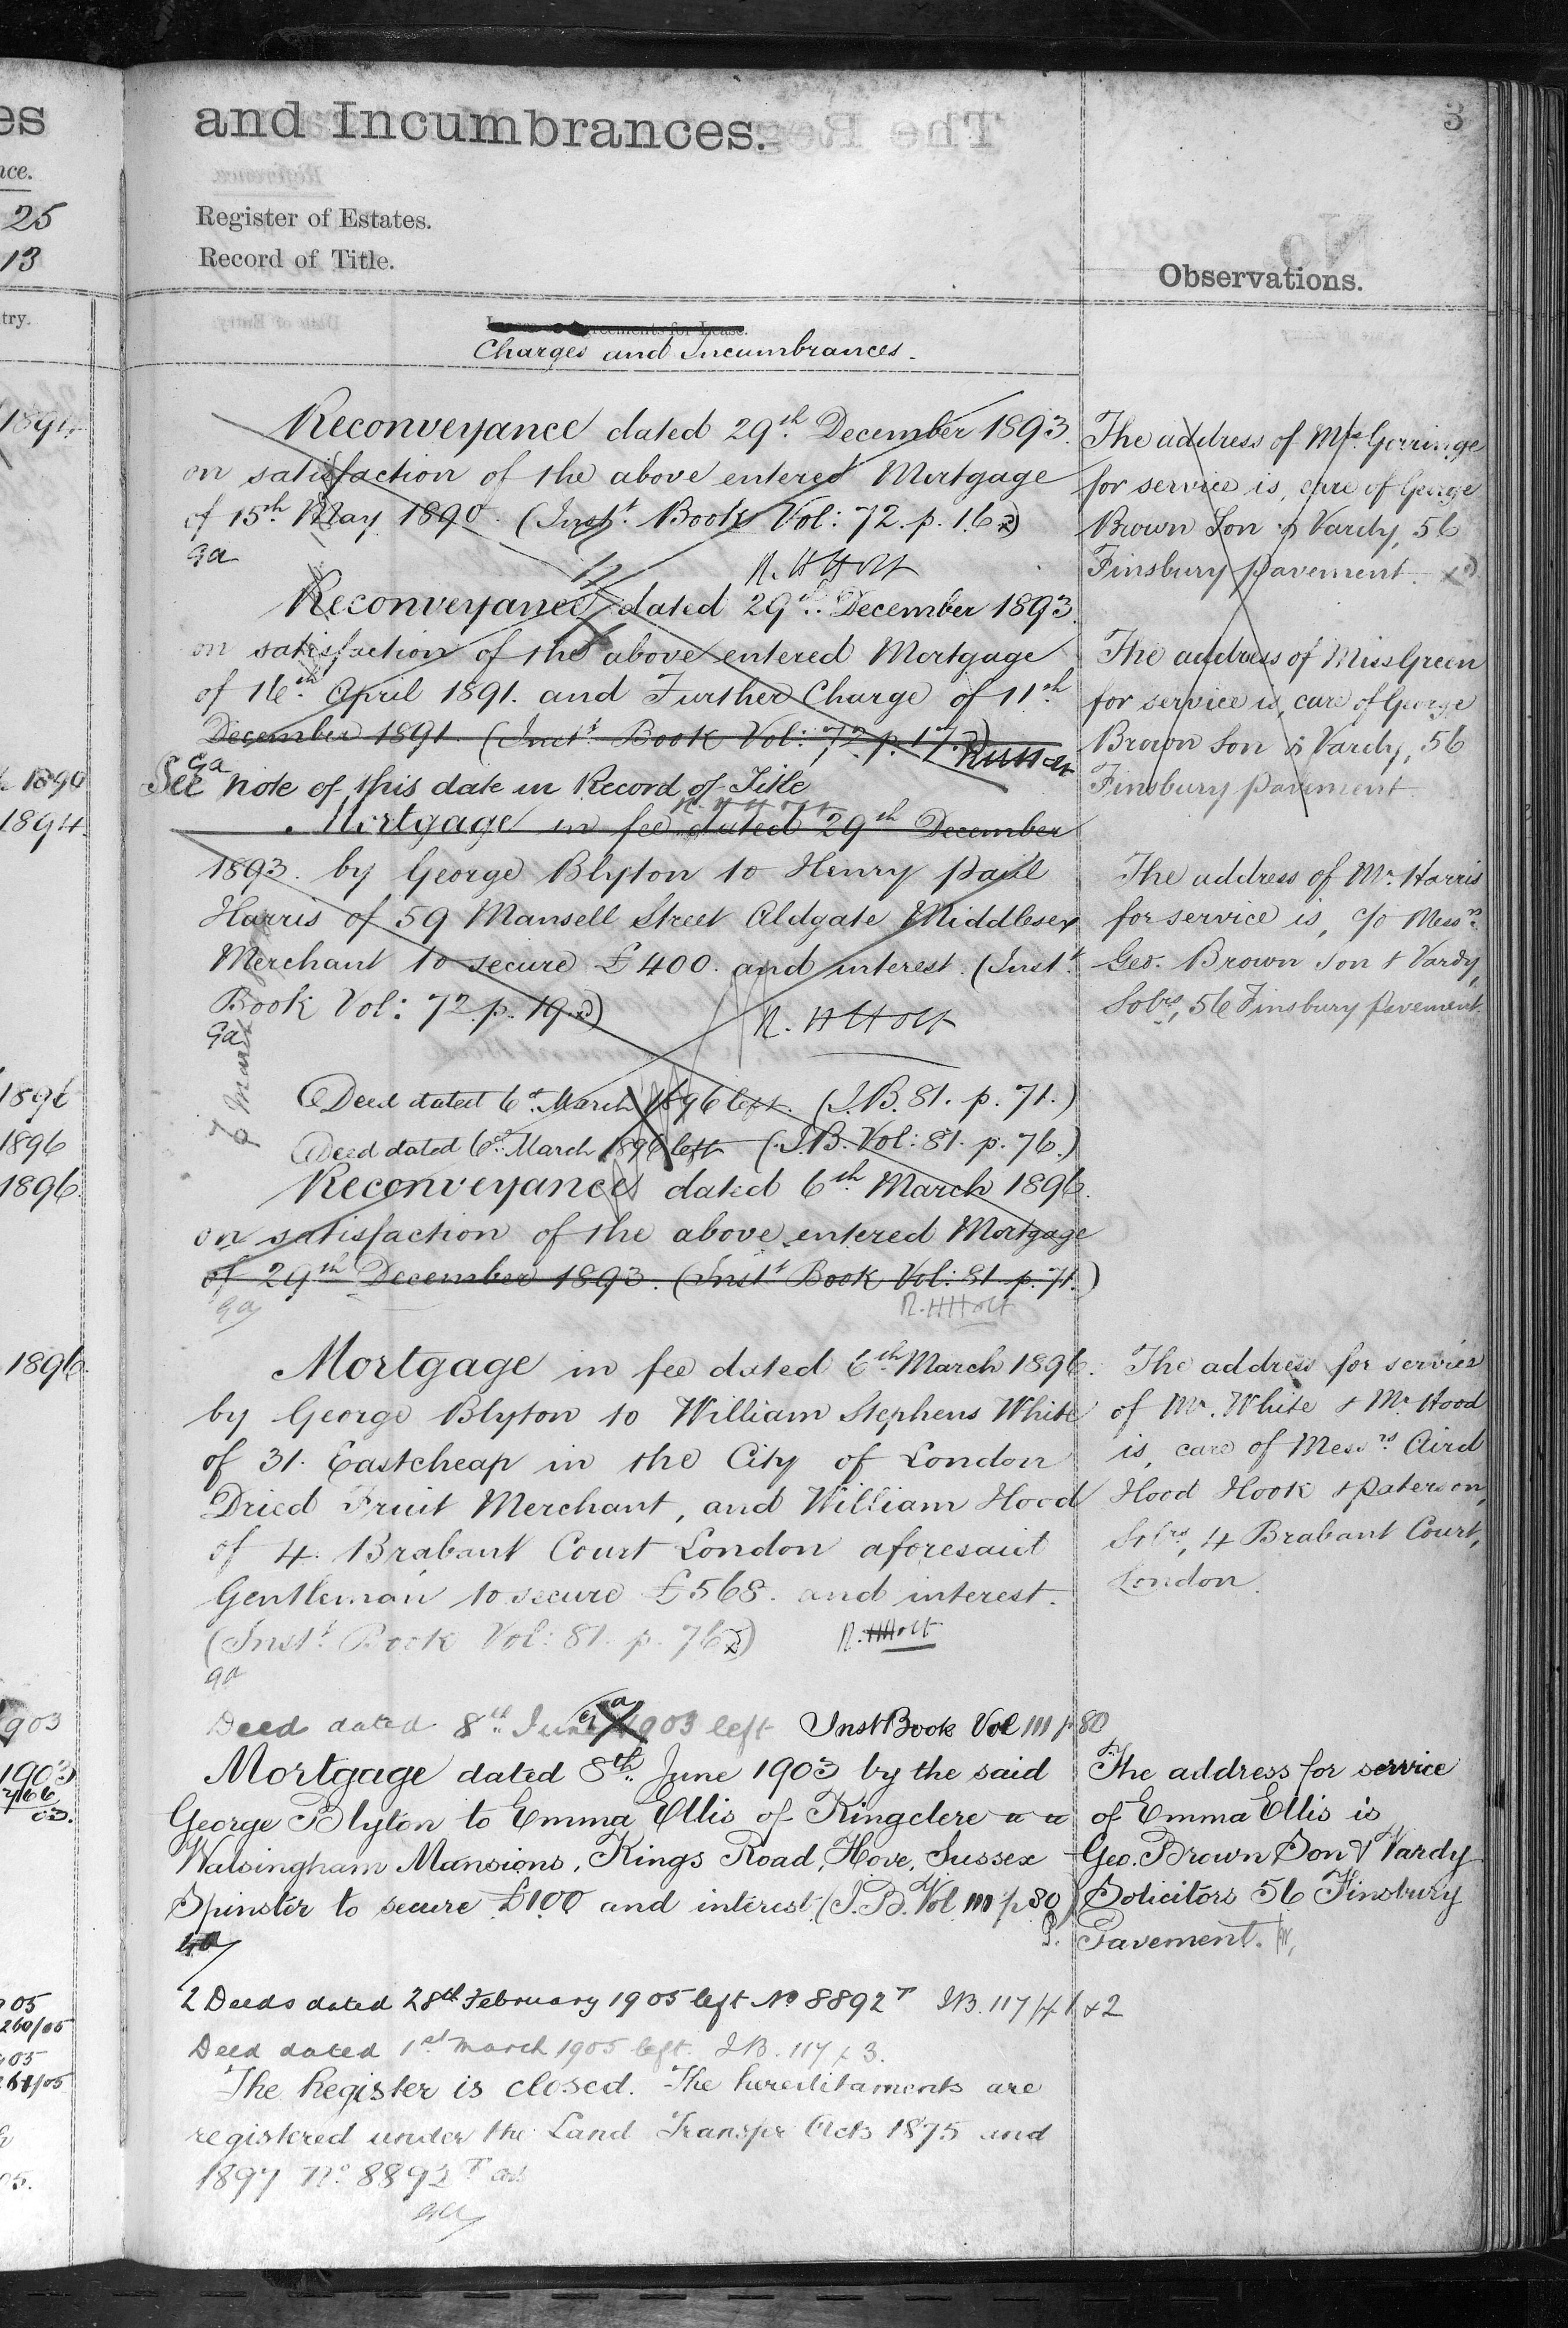 es
and Incumbrances.
3
nce.
25
Register of Estates.
13
Record of Title.
Observations.
try.
Agreements for Lease.
Charges and Incumbrances.
1894
Reconveyance dated 29th December 1893.
on satisfaction of the above entered Mortgage
of 15th May 1890. (Inst. Book Vol: 72. p. 16)
ga
R. H Holt
The address of Mrs Gorringe
for service is, care of George
Brown Son & Vardy, 56
Finsbury pavement.
Reconveyance dated 29th December 1893
on satisfaction of the above entered Mortgage
of 16th April 1891. and Further Charge of 11th
December 1891. (Inst. Book Vol: 72 p. 17.)
ga
The address of Miss Green
for service is, care of George
Brown Son & Vardy, 56
Finsbury pavement.
1894
See note of this date in Record of Title
R. H Holt
1894.
Mortgage in fee dated 29th December
1893. by George Blyton to Henry Paul
Harris of 59 Mansell Street Aldgate Middlesex
Merchant to secure £400. and interest. (Inst.
Book Vol: 72. p. 19.)
ga
R. H Holt
The address of Mr. Harris
for service is, c/o Messrs.
Geo. Brown Son & Vardy,
Solrs, 56 Finsbury Pavement.
7 March
1896
Deed dated 6th March 1896 left. (I.B. 81. p. 71.)
1896
Deed dated 6th March 1896 left (I.B. Vol: 81. p. 76.)
1896.
Reconveyance dated 6th March 1896.
on satisfaction of the above entered Mortgage
of 29th December 1893. (Inst. Book Vol: 81 p. 71.)
ga
R. H Holt
1896.
Mortgage in fee dated 6th March 1896.
by George Blyton to William Stephens White
of 31. Eastcheap in the City of London
Dried Fruit Merchant, and William Hood
of 4. Brabant Court London aforesaid
Gentleman to secure £568. and interest.
(Inst. Book Vol: 81. p. 76)
ga
R. H Holt
The address for service
of Mr. White & Mr Hood
is, care of Messrs Aird
Hood Hook & Paterson,
Solrs, 4 Brabant Court,
London.
1903
Deed dated 8th June 1903 left Inst Book Vol 111 p 80
1903
Mortgage dated 8th June 1903 by the said
George Blyton to Emma Ellis of Kingclere
Walsingham Mansions, Kings Road, Hove, Sussex
Spinster to secure £100 and interest (I.B. Vol 111 p 80)
ga
The address for service
of Emma Ellis is
Geo. Brown Son & Vardy
Solicitors 56 Finsbury
Pavement.
05
260/05
2 Deeds dated 28th February 1905 left No 8892 I.B. 117/4 1 & 2
05
261/05
Deed dated 1st March 1905 left. I.B. 117 / 3.
The Register is closed. The hereditaments are
registered under the Land Transfer Acts 1875 and
05.
1897 No 8892
ga